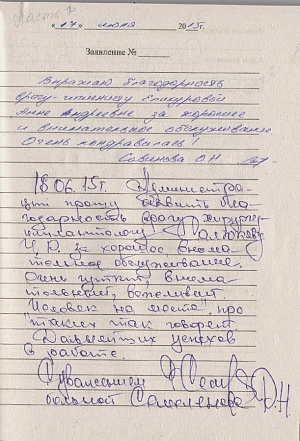 "17" июня 2015г.
Заявление №
Выражаю благодарность
врачу-гигиенисту
Анне Андреевне за хорошее
и внимательное обслуживание
Очень понравилась!
Савинова О.Н.
18.06.15г. Администра-
цию прошу объявить бла-
годарность врачу хирургу-
имплантологу
за хорошее внима-
тельное обслуживание.
Очень чуткий, внима-
тельный, вежливый
"Человек на месте", про
"таких так говорят
Дальнейших успехов
в работе.
С уважением
больной